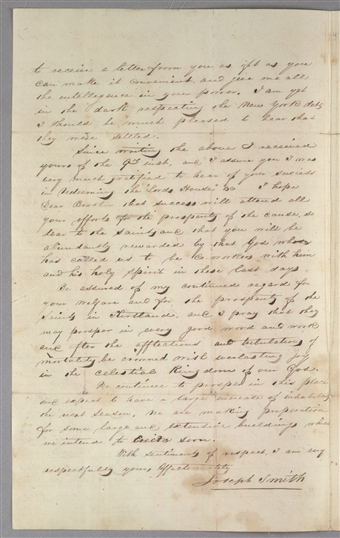 to receive a letter from you as oft as you
can make it convenient and give me all
the intelligence in your power. I am yet
in the dark respecting the New York debts
I should be much pleased to hear that
they were settled.
Since writing the above I received
yours of the 9th inst. and I assure you I was
very much gratified to hear of your success
in redeeming the Lords House &c I hope
Dear Broth that success will attend all
your efforts for the prosperity of the cause, so
dear to the Saints and that you will be
abundantly rewarded by that God who
has called us to be Co workers with him
and his holy Spirit in these last days.
Be assured of my continued regard for
your welfare and for the prosperity of the
Saints in Kirtland, and I pray that they
may prosper in every good word and work
and after the afflictions and tribulations of
mortality be crowned with everlasting joy
in the Celestial Kingdoms of our God.
We continue to prosper in this place
and expect to have a large increase of inhabitants
the next season. We are making preparation
for some large and extensive buildings which
we intend to soon.
With sentiments of respect, I am very
respectfully yours affectionately
Joseph Smith